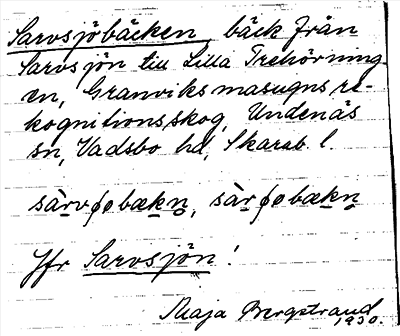 Sarvsjöbäcken, bäck från
Sarvsjön till Lilla Trehörning-
en, Granviks masugns re-
kognitionsskog, Undenäs
sn, Vadsbo hd, Skarab. l.
sàrvʃøbækn̥, sàrʃøbækn̥
Jfr Sarvsjön!
Maja Bergstrand
1930.